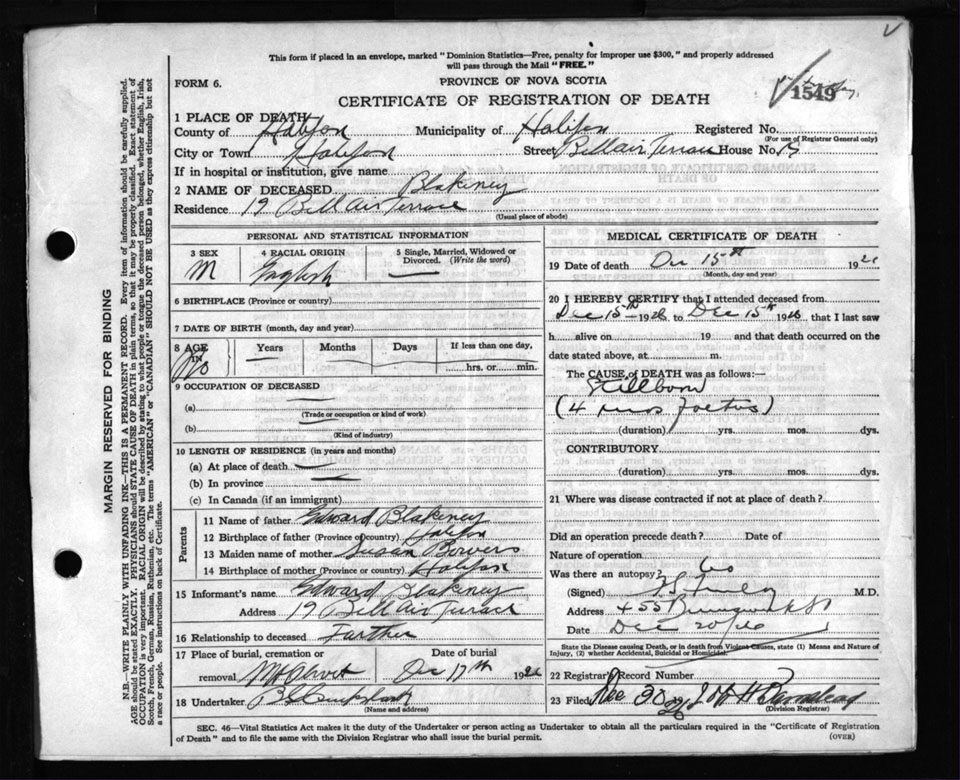 This form if placed in an envelope, marked "Dominion Statistics—Free, penalty for improper use $300," and properly addressed
will pass through the Mail "FREE."
FORM 6.
PROVINCE OF NOVA SCOTIA
1549
CERTIFICATE OF REGISTRATION OF DEATH
1 PLACE OF DEATH
County of Halifax Municipality of Halifax Registered No.
(For use of Registrar General only)
City or Town Halifax Street Bellair Terrace House No. 19
If in hospital or institution, give name
2 NAME OF DECEASED Blakeney
Residence 19 Bell Air Terrace
(Usual place of abode)
PERSONAL AND STATISTICAL INFORMATION
3 SEX M
4 RACIAL ORIGIN English
5 Single, Married, Widowed or Divorced. (Write the word)
6 BIRTHPLACE (Province or country)
7 DATE OF BIRTH (month, day and year)
8 AGE Years Months Days If less than one day,
hrs. or min.
9 OCCUPATION OF DECEASED
(a)
(Trade or occupation or kind of work)
(b)
(Kind of industry)
10 LENGTH OF RESIDENCE (in years and months)
(a) At place of death
(b) In province
(c) In Canada (if an immigrant)
Parents
11 Name of father Edward Blakeney
12 Birthplace of father (Province or country) Halifax
13 Maiden name of mother Susan Bowers
14 Birthplace of mother (Province or country) Halifax
15 Informant's name Edward Blakeney
Address 19 Bell Air Terrace
16 Relationship to deceased Farther
17 Place of burial, cremation or removal Mt Olivet
Date of burial Dec 17th 1926
18 Undertaker
(Name and address)
MEDICAL CERTIFICATE OF DEATH
19 Date of death Dec 15th 1926
(Month, day and year)
20 I HEREBY CERTIFY that I attended deceased from
Dec 15th 1926 to Dec 15th 1926 that I last saw
h alive on 19 and that death occurred on the
date stated above, at m.
The CAUSE of DEATH was as follows:—
Stillborn
(4 mos foetus)
(duration) yrs. mos. dys.
CONTRIBUTORY
(duration) yrs. mos. dys.
21 Where was disease contracted if not at place of death?
Did an operation precede death? Date of
Nature of operation
Was there an autopsy? No
(Signed) M.D.
Address 455 Brunswick St
Date Dec 20/26
State the Disease causing Death, or in death from Violent Causes, state (1) Means and Nature of
Injury, (2) whether Accidental, Suicidal or Homicidal.
22 Registrar's Record Number
23 Filed Dec 30
(Division Registrar)
SEC. 46—Vital Statistics Act makes it the duty of the Undertaker or person acting as Undertaker to obtain all the particulars required in the "Certificate of Registration
of Death" and to file the same with the Division Registrar who shall issue the burial permit.
(OVER)
MARGIN RESERVED FOR BINDING
N.B.—WRITE PLAINLY WITH UNFADING INK—THIS IS A PERMANENT RECORD. Every item of information should be carefully supplied.
AGE should be stated EXACTLY. PHYSICIANS should STATE CAUSE OF DEATH in plain terms, so that it may be properly classified. Exact statement of
OCCUPATION is very important. RACIAL ORIGIN will be described by stating to what people or tongue the deceased person belonged, whether English, Irish,
Scotch, French, German, Russian, Ruthenian, etc. The terms "AMERICAN" or "CANADIAN" SHOULD NOT BE USED as they express citizenship but not
a race or people. See instructions on back of Certificate.